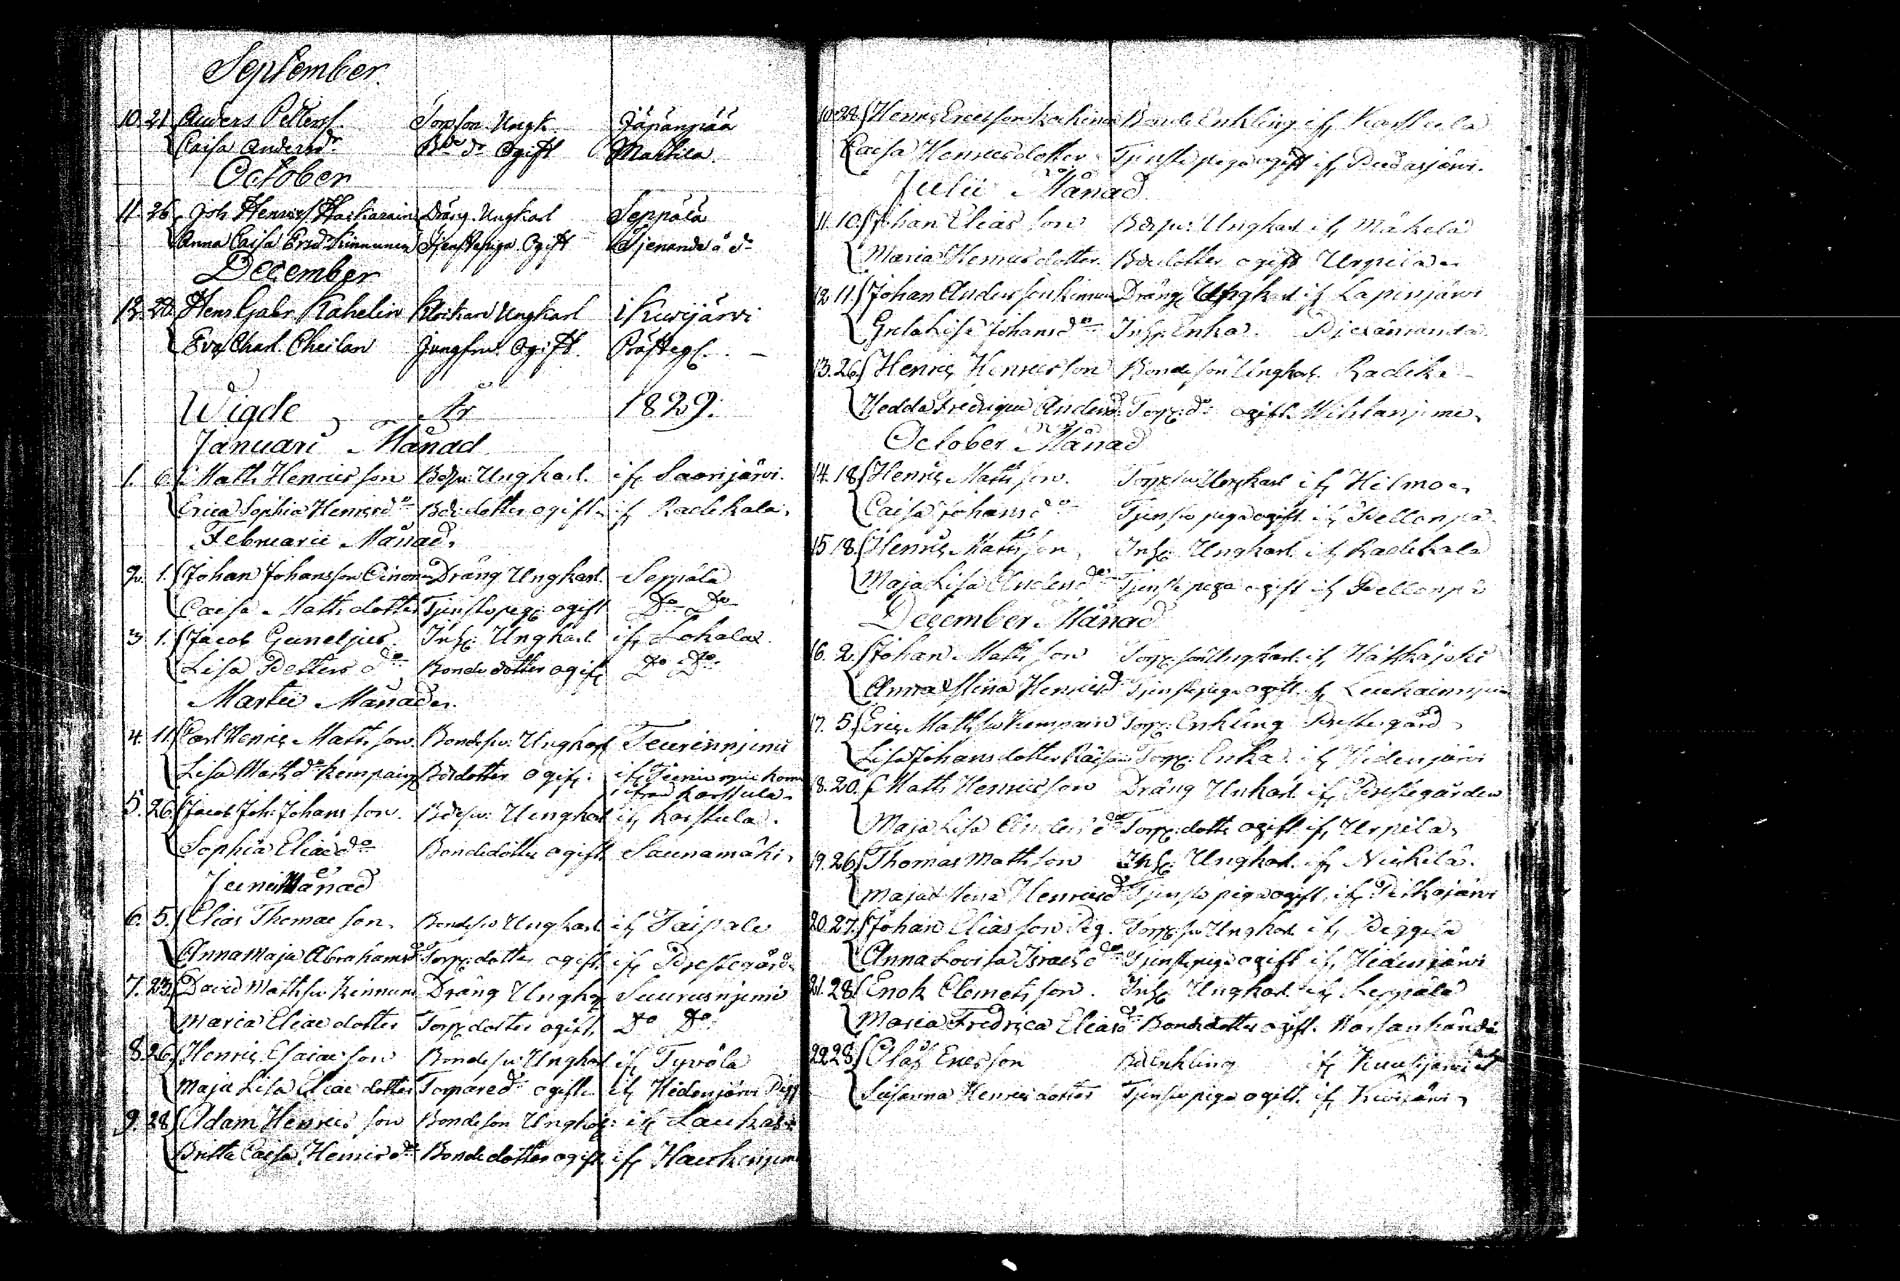 September
10. 21. Anders Petterss. Torpson Ungk. Jäpänpää
Caisa Andersdr. Bde dr Ogift Marttila
October
11. 26. Joh. Henrics. Haikarain Dräng. Ungkarl Seppälä
Anna Caisa Ersd. Kinnunen Tjenstepiga Ogift Tjenande å do
December
12. 28. Hens Gabr Kahelin Klockare Ungkarl i Kivijärvi
Eva Charl. Cheilan Jungfru. Ogift. Prästeg.
Wigde År 1829.
Januari Månad
1. 6. Math Henricsson Bdesn: Ungkarl. ifr Saarijärvi.
Erica Sophia Henricsdr Bde dotter ogift ifr Radekala.
Februarii Månad.
2. 1. Johan Johansson Oinon Dräng Ungkarl. Seppälä
Caisa Maths dotter Tjenstepig: ogift Do Do
3. 1. Jacob Gabrielsson Inh: Ungkarl ifr Lokala
Lisa Petters dr Bonde dotter ogift Do Do.
Martii Månad.
4. 11. Carl Henric Mathsson Bondeson: Ungkarl Teuriniemi
Lisa Mathsdr Kempain Bdedotter ogift. ifr
ifrån Karstula.
5. 26. Jacob Joh: Johansson. Bdesn: Ungkarl ifr Karstula.
Sophia Eliæ dr Bondedotter ogift Saunamäki.
Junii Månad
6. 5. Elias Thomasson. Bondeson Ungkarl ifr Taipale
Anna Maja Abrahamsdr Torp: dotter ogift ifr Prestegård.
7. 23. David Mathsson Kinnun Dräng Ungkarl Suurusniemi
Maria Eliae dotter Torp: dotter ogift Do Do.
8. 26. Henric Esaiasson Bondeson Ungkarl ifr Tyvölä
Maja Lisa Eliae dotter Torpare dr ogift ifr Hidenjärvi
9. 28. Adam Henricsson Bondeson Ungkarl: ifr Laukas
Britta Caisa Henricsdr Bonde dotter ogift ifr Haukiniemi
10. 28. Henric Ericsson Bonde Enkling ifr Karstula
Caisa Henricsdotter Tjenstepiga ogift ifr Pudasjärvi.
Julii Månad
11. 10. Johan Eliasson Bdesn: Ungkarl ifr Mäkelä
Maria Henricsdotter Bdedotter ogift Urpila.
12. 11. Johan Andersson Kinnun Dräng Ungkarl ifr Lapinjärvi
Greta Lisa Johansdr Inh: Enka.
13. 26. Henric Henricsson Bondeson Ungkarl. Radeka
Hedda Fredrique Andersdr Torp: dr ogift.
October Månad
14. 18. Henric Mathsson. Torp: son Ungkarl ifr Hilmo
Caisa Johansdr Tjenstepiga ogift ifr Pellonpä
15. 18. Henric Mathsson, Inh: Ungkarl ifr Radekala
Maja Lisa Andersdr Tjenstepiga ogift ifr Pellonpä
December Månad
16. 2. Johan Mathsson Torp: son Ungkarl. ifr Häkkäjoki
Anna Stina Henricsdr Tjenstepiga ogift. ifr
17. 5. Eric Mathsson Kempain Torp: Enkling Prestegård
Lisa Johansdotter Räisän Torp: Enka ifr Hidenjärvi
18. 20. Math Henricsson Dräng Unkarl ifr Prestegården
Maja Lisa Anders dr Torp: dotter ogift ifr Urpila.
19. 26. Thomas Mathsson Inh: Ungkarl. ifr Niskilä.
Maja Stena Henricsdr Tjenstepiga ogift ifr Pitkäjärvi
20. 27. Johan Eliasson Pig. Torp: son Ungkarl ifr Piggila
Anna Lovisa Israelsdr Tjenstepiga ogift ifr Hidenjärvi
21. 28. Enok Clemetsson. Inh: Ungkarl ifr Leppälä
Maria Fredrica Eliasdr Bondedotter ogift.
22. 28. Olof Ericsson Bd Enkling ifr Kuusijärvi
Susanna Henricsdotter Tjenstepiga ogift ifr Kivijärvi